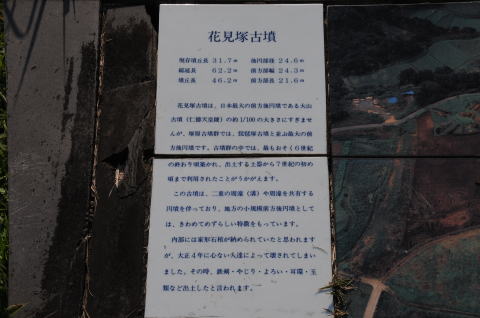 花見塚古墳
現存墳丘長 31.7m 後円部径 24.6m
総延長 62.2m 前方部幅 24.3m
墳丘長 46.2m 前方部長 21.6m
花見塚古墳は、日本最大の前方後円墳である大山
古墳（仁徳天皇陵）の約1/100の大きさにすぎませ
んが、塚原古墳群では、琵琶塚古墳と並ぶ最大の前
方後円墳です。古墳群の中では、最もおそく6世紀
の終わり頃築かれ、出土する土器から7世紀の初め
頃まで利用されたことがうかがえます。
この古墳は、二重の周湟（溝）や周湟を共有する
円墳を伴っており、地方の小規模前方後円墳として
は、きわめてめずらしい特徴をもっています。
内部には家形石棺が納められていたと思われます
が、大正4年に心ない人達によって壊されてしまい
ました。その時、鉄剣・やじり・よろい・耳環・玉
類など出土したと言われます。